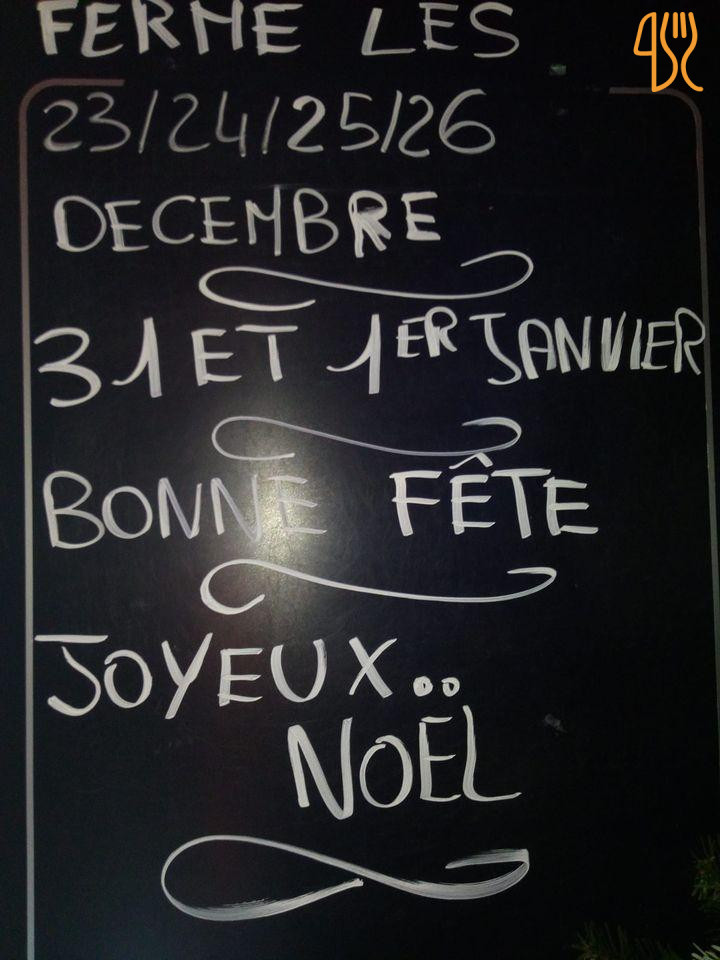 FERME LES
23/24/25/26
DECEMBRE
31 ET 1ER JANVIER
BONNE FÊTE
JOYEUX
NOËL